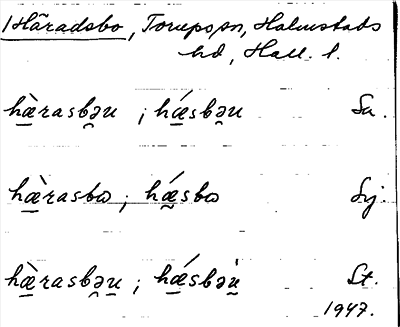 Häradsbo, Torups sn, Halmstads
hd, Hall. l.
hæ̀rasbəu ; hǽsbəu Sa.
hæ̀rasbɷ ; hǽsbɷ Sj.
hæ̀rasbəu ; hǽsbəu St.
1947.